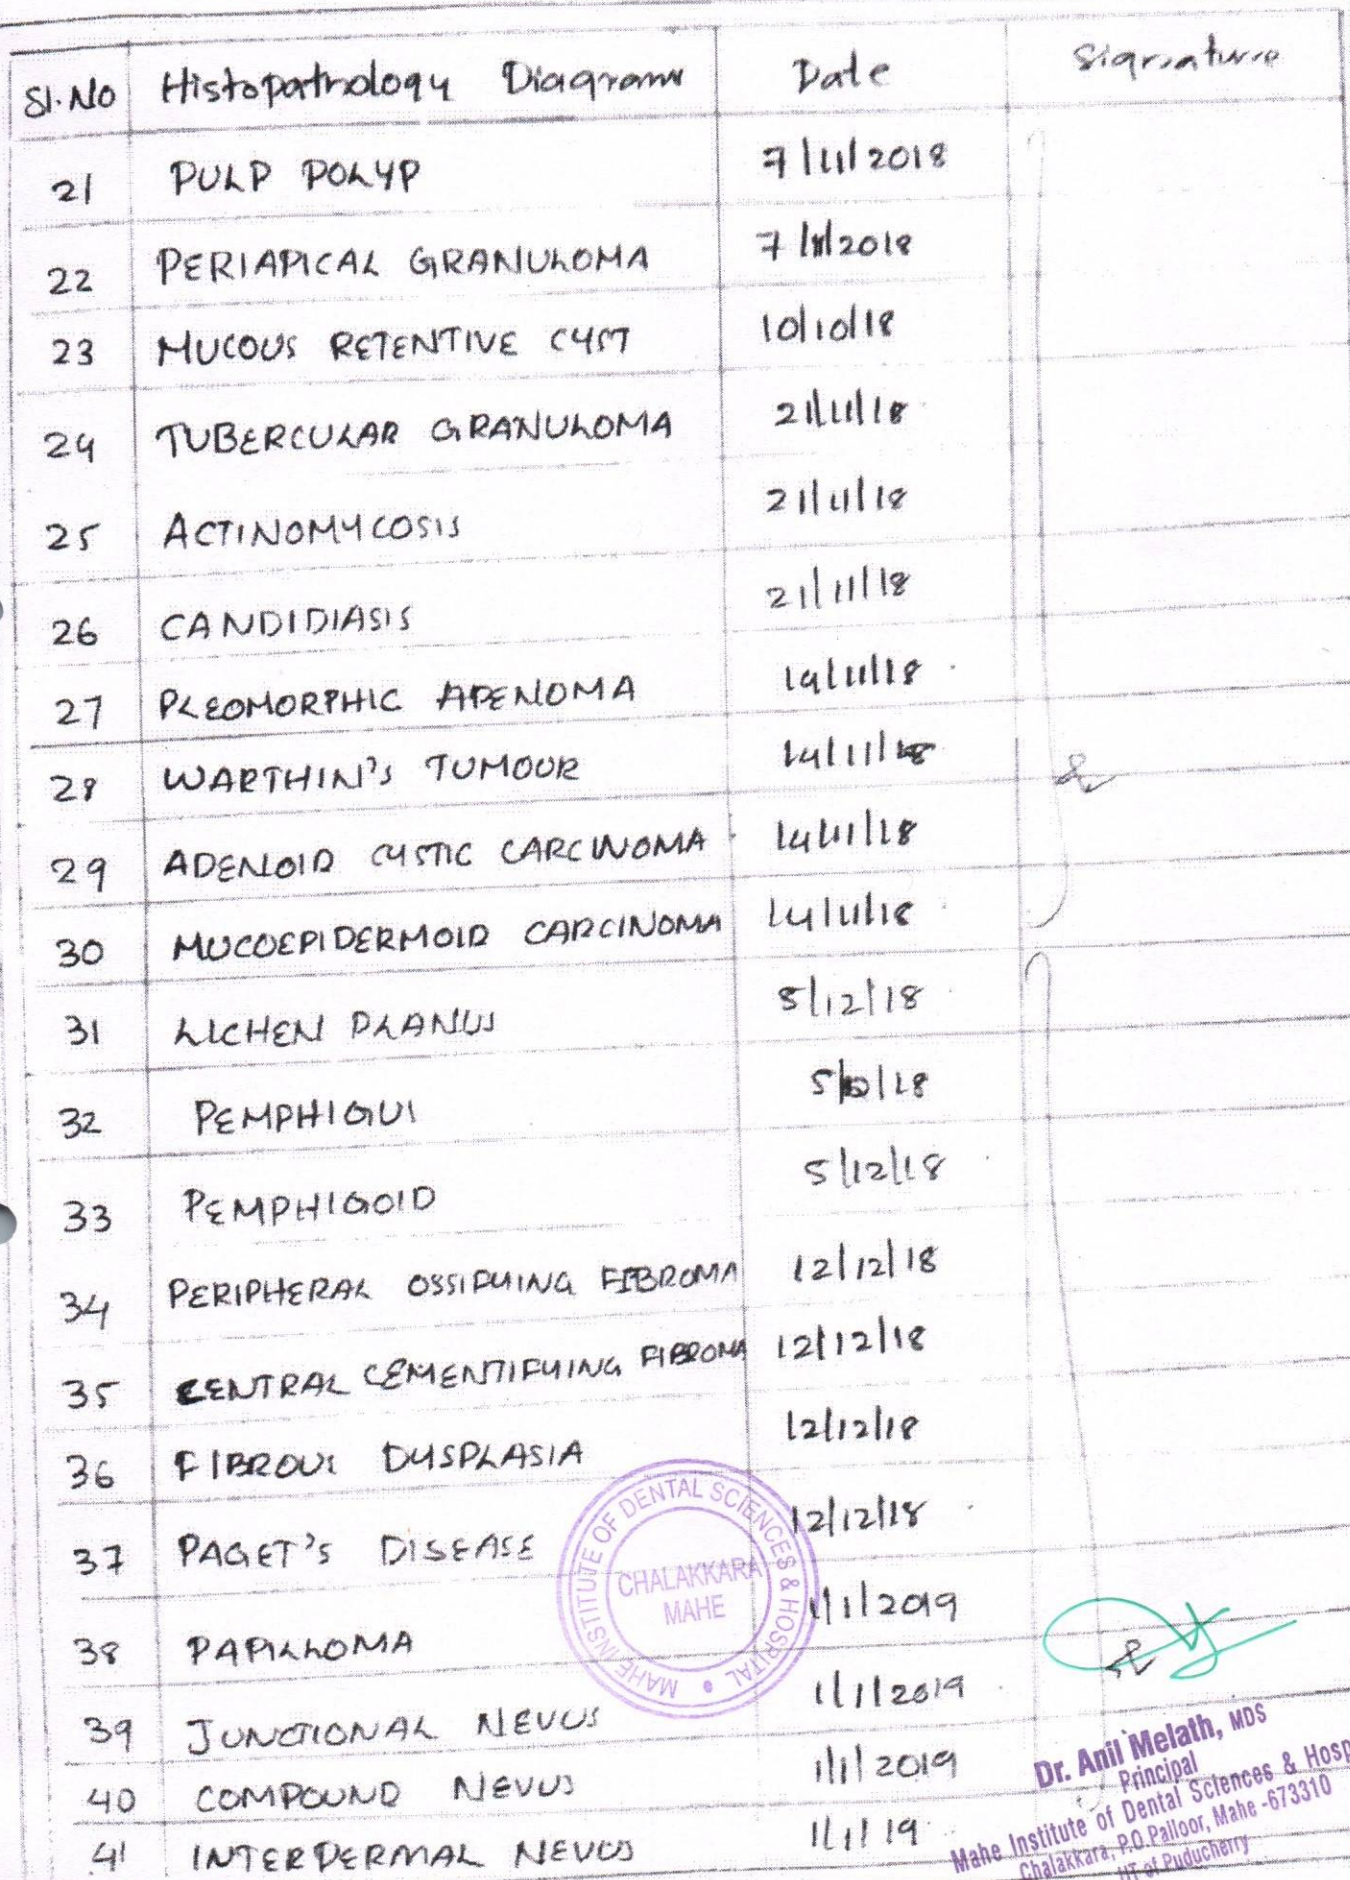 Sl.No Histopathology Diagram Date Signature
21 PULP POLYP 7/11/2018
22 PERIAPICAL GRANULOMA 7/11/2018
23 MUCOUS RETENTIVE CYST 10/10/18
24 TUBERCULAR GRANULOMA 21/11/18
25 ACTINOMYCOSIS 21/11/18
26 CANDIDIASIS 21/11/18
27 PLEOMORPHIC ADENOMA 14/11/18
28 WARTHIN'S TUMOUR 14/11/18
29 ADENOID CYSTIC CARCINOMA 14/11/18
30 MUCOEPIDERMOID CARCINOMA 14/11/18
31 LICHEN PLANUS 5/12/18
32 PEMPHIGUS 5/12/18
33 PEMPHIGOID 5/12/18
34 PERIPHERAL OSSIFYING FIBROMA 12/12/18
35 CENTRAL CEMENTIFYING FIBROMA 12/12/18
36 FIBROUS DYSPLASIA 12/12/18
37 PAGET'S DISEASE 12/12/18
MAHE INSTITUTE OF DENTAL SCIENCES & HOSPITAL
CHALAKKARA
MAHE
38 PAPILLOMA 1/1/2019
39 JUNCTIONAL NEVUS 1/1/2019
40 COMPOUND NEVUS 1/1/2019
41 INTERDERMAL NEVUS 1/1/19
Dr. Anil Melath, MDS
Principal
Mahe Institute of Dental Sciences & Hosp
Chalakkara, P.O.Palloor, Mahe -673310
UT of Puducherry